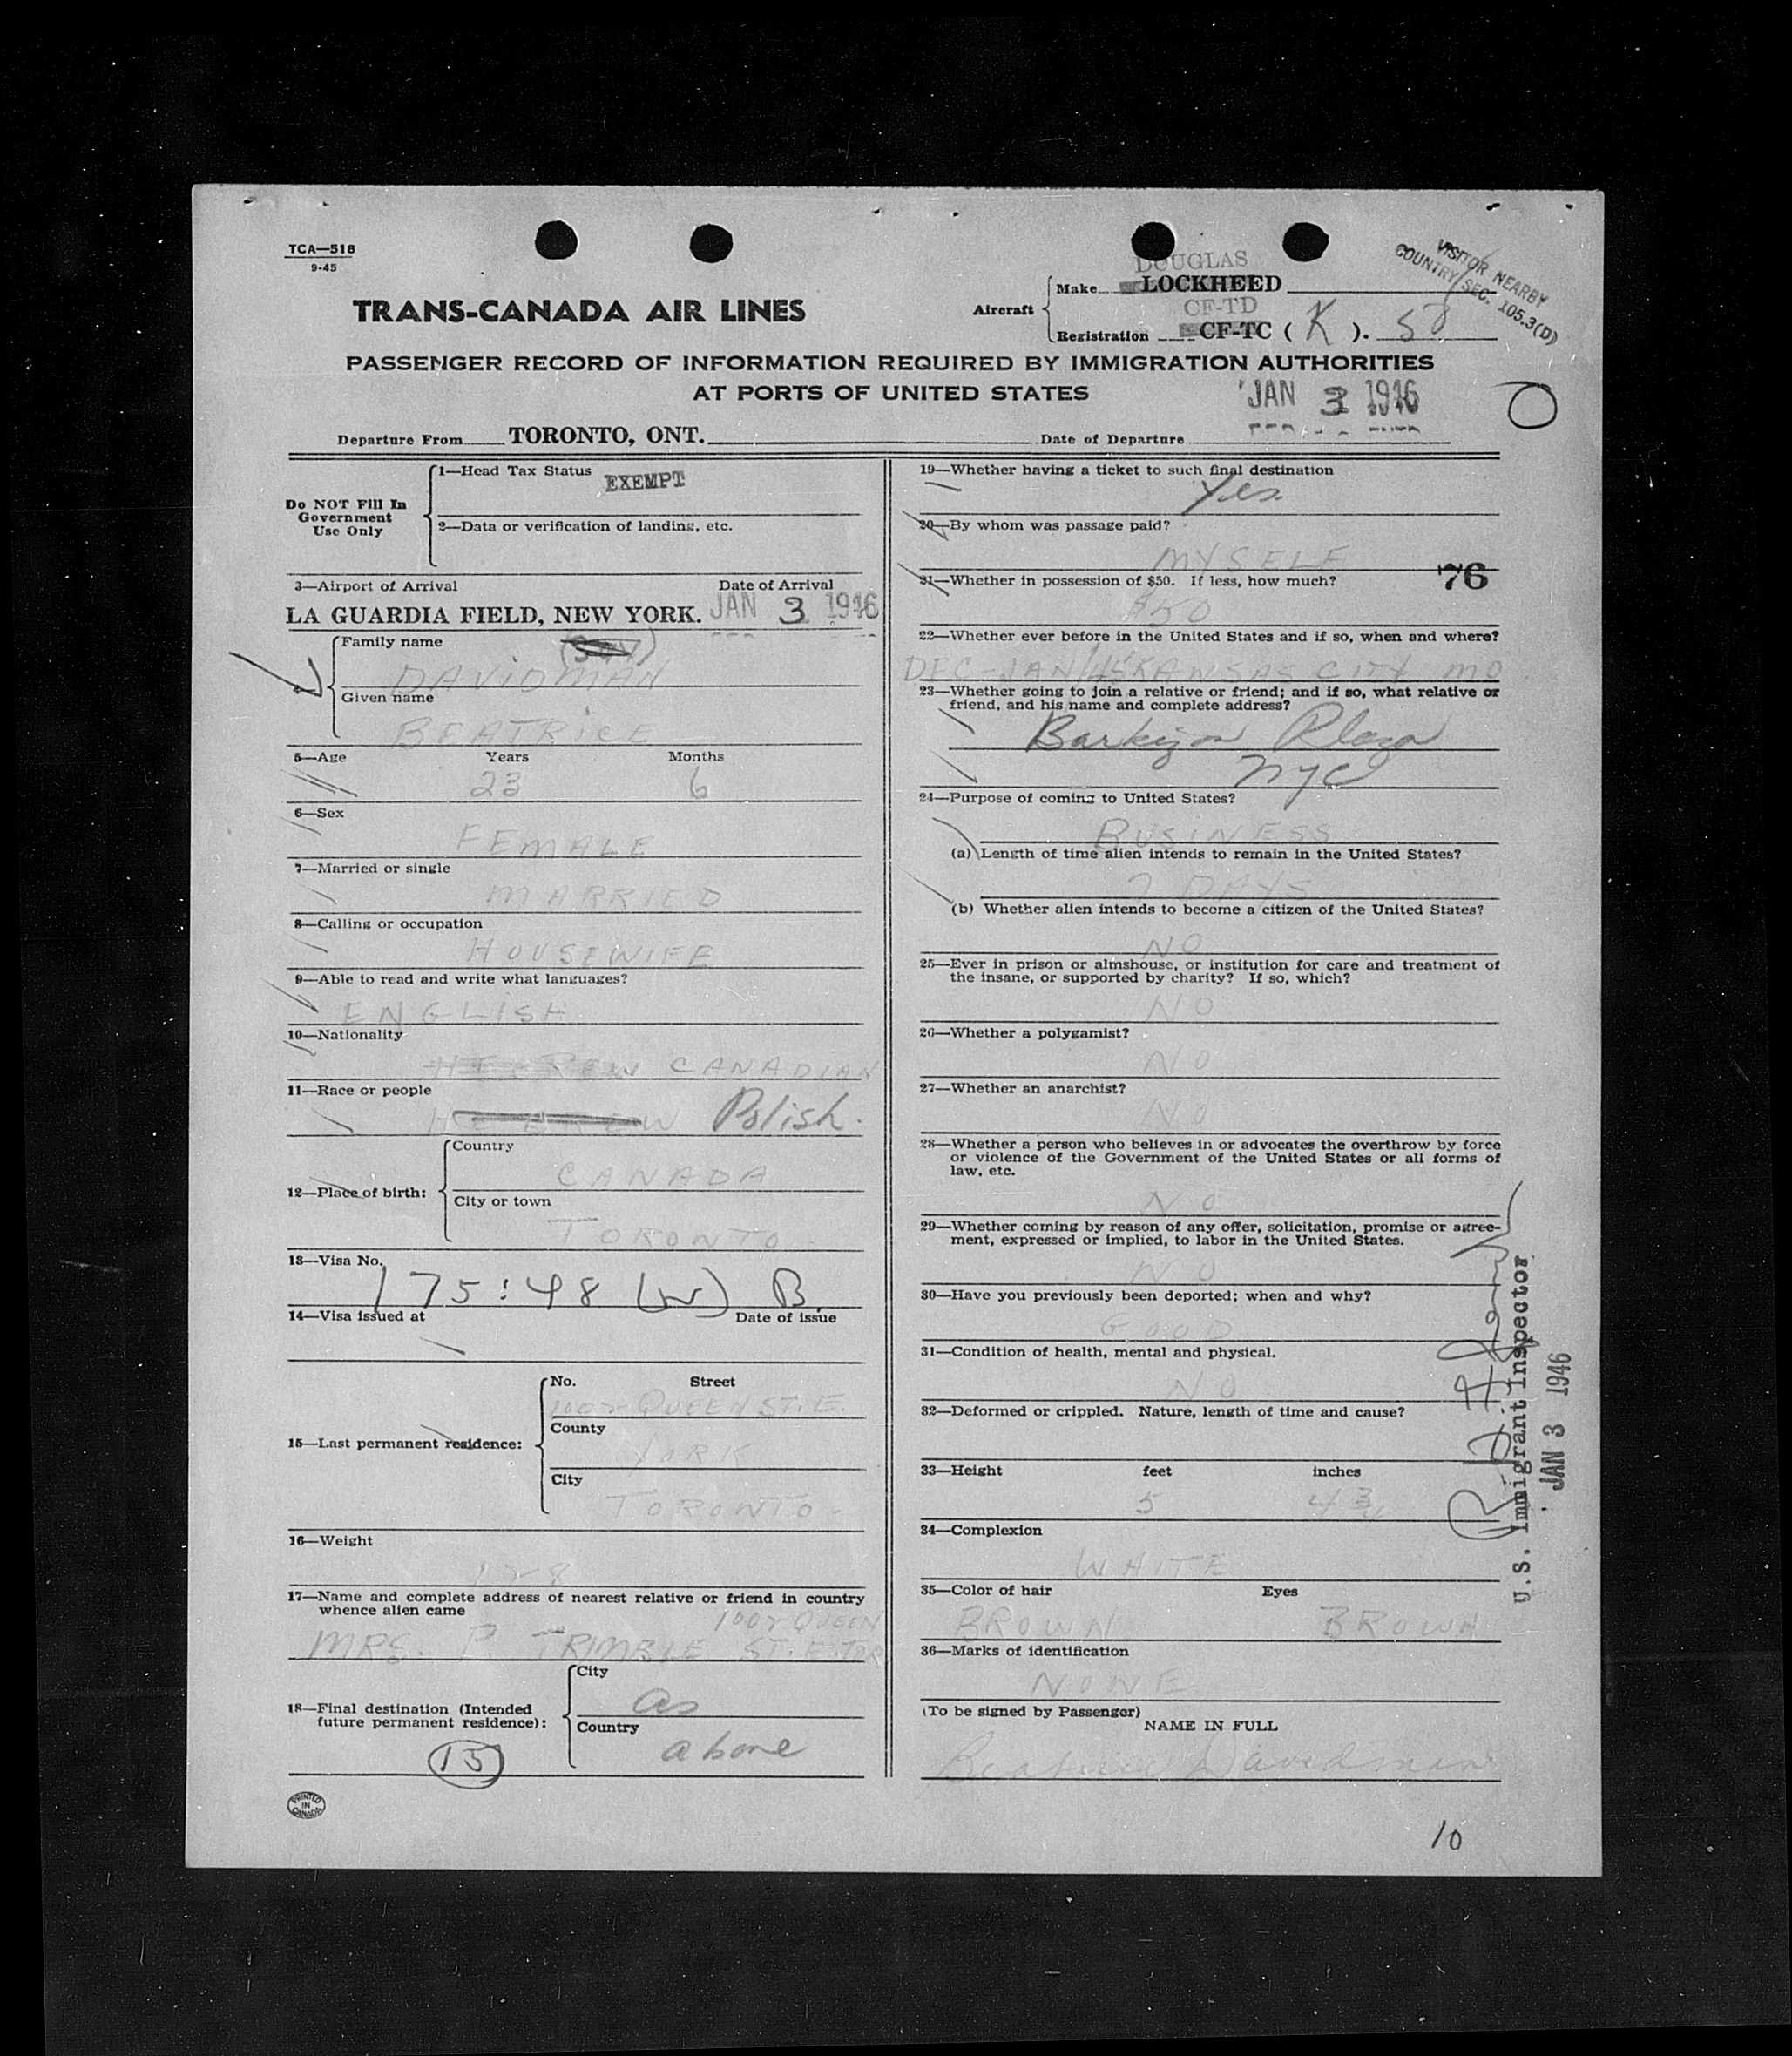 TCA—518
9-45
TRANS-CANADA AIR LINES
Aircraft
DOUGLAS
Make LOCKHEED
CF-TD
Registration CF-TC ( K ). 58
VISITOR NEARBY
COUNTRY SEC. 105.3(D)
PASSENGER RECORD OF INFORMATION REQUIRED BY IMMIGRATION AUTHORITIES
AT PORTS OF UNITED STATES
JAN 3 1946
Departure From TORONTO, ONT. Date of Departure
Do NOT Fill In
Government
Use Only
1—Head Tax Status
EXEMPT
2—Data or verification of landing, etc.
3—Airport of Arrival Date of Arrival
LA GUARDIA FIELD, NEW YORK. JAN 3 1946
Family name
DAVIDMAN
Given name
BEATRICE
5—Age Years Months
23 6
6—Sex
FEMALE
7—Married or single
MARRIED
8—Calling or occupation
HOUSEWIFE
9—Able to read and write what languages?
ENGLISH
10—Nationality
HEBREW CANADIAN
11—Race or people
HEBREW Polish.
12—Place of birth:
Country
CANADA
City or town
TORONTO
13—Visa No.
175:48 (W) B.
14—Visa issued at Date of issue
15—Last permanent residence:
No. Street
1002 QUEEN ST. E.
County
YORK
City
TORONTO
16—Weight
128
17—Name and complete address of nearest relative or friend in country
whence alien came
1002 QUEEN
MRS. P. TRIMBLE ST. E. TOR
18—Final destination (Intended
future permanent residence):
City
as
Country
above
15
PRINTED
IN
CANADA
19—Whether having a ticket to such final destination
Yes.
20—By whom was passage paid?
MYSELF
76
21—Whether in possession of $50. If less, how much?
$50
22—Whether ever before in the United States and if so, when and where?
DEC-JAN/45 KANSAS CITY MO
23—Whether going to join a relative or friend; and if so, what relative or
friend, and his name and complete address?
Barkizon Plaza
NYC
24—Purpose of coming to United States?
BUSINESS
(a) Length of time alien intends to remain in the United States?
7 DAYS
(b) Whether alien intends to become a citizen of the United States?
NO
25—Ever in prison or almshouse, or institution for care and treatment of
the insane, or supported by charity? If so, which?
NO
26—Whether a polygamist?
NO
27—Whether an anarchist?
NO
28—Whether a person who believes in or advocates the overthrow by force
or violence of the Government of the United States or all forms of
law, etc.
NO
29—Whether coming by reason of any offer, solicitation, promise or agree-
ment, expressed or implied, to labor in the United States.
NO
30—Have you previously been deported; when and why?
GOOD
31—Condition of health, mental and physical.
NO
32—Deformed or crippled. Nature, length of time and cause?
33—Height feet inches
5 4 3/4
34—Complexion
WHITE
35—Color of hair Eyes
BROWN BROWN
36—Marks of identification
NONE
(To be signed by Passenger)
NAME IN FULL
Beatrice Davidman
U.S. Immigrant Inspector
JAN 3 1946
10